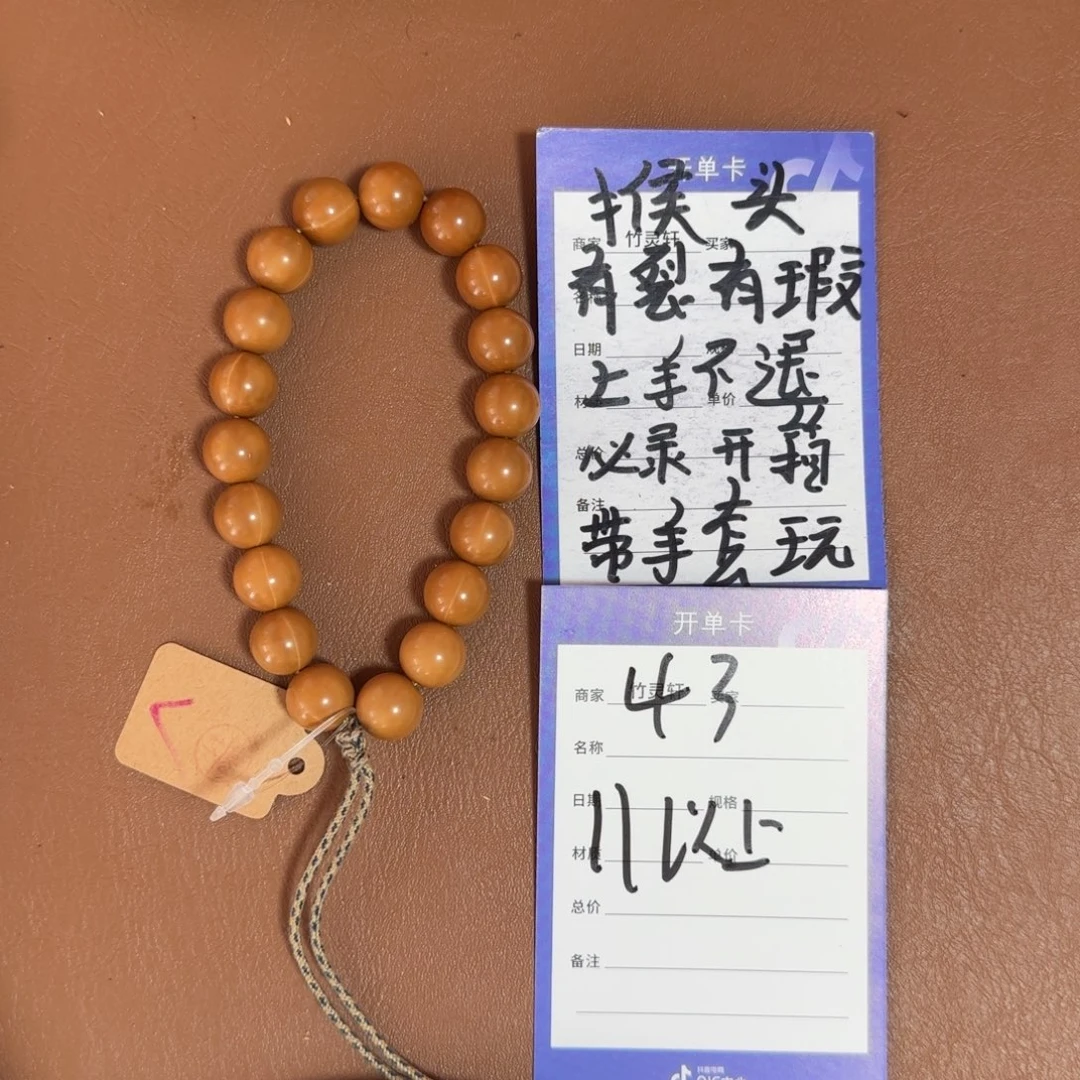 开单卡
猴头
商家 竹灵轩 买家
有裂有瑕
日期
上手不退
单价
必录开箱
备注
带手套玩
开单卡
43
商家 竹灵轩 买家
名称
日期 规格
11以上
材质 单价
总价
备注